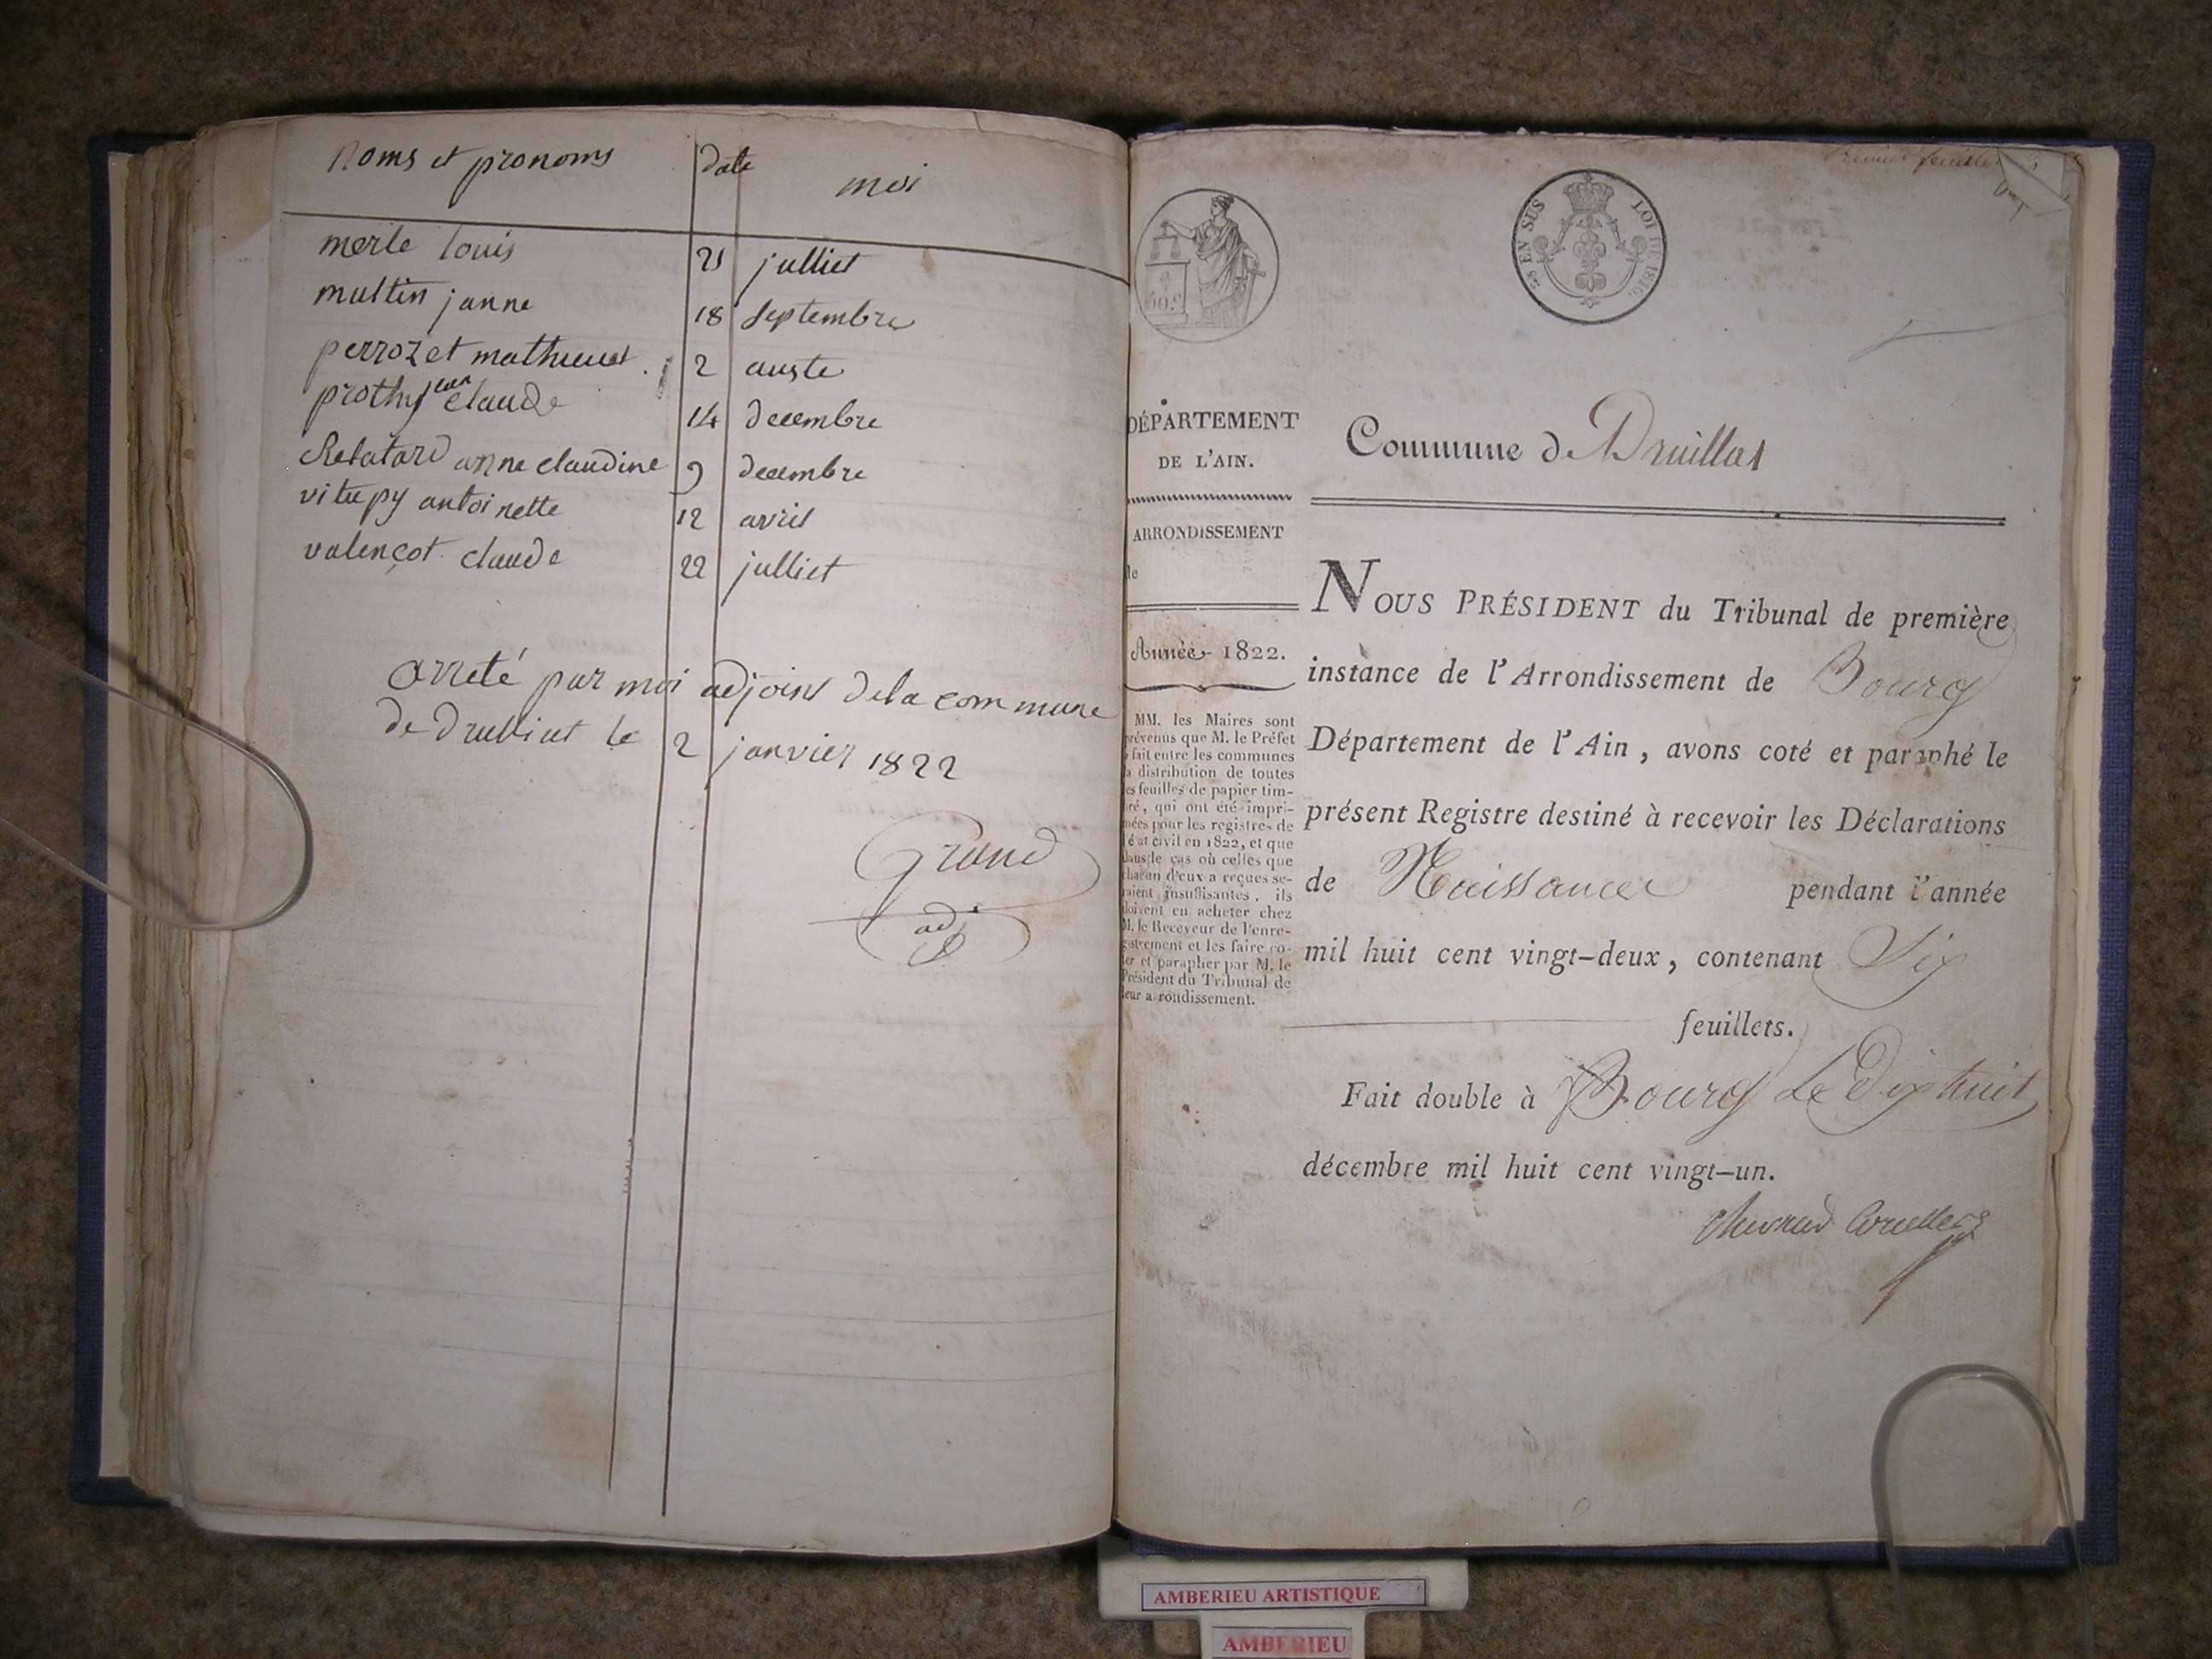 Noms et pronoms date moi
merle louis 21 julliet
multin janne 18 septembre
perrozet mathieu 2 auste
prothy jean claude 14 decembre
Rebatard anne claudine 9 decembre
vitupy antoinette 12 avril
valençot claude 22 julliet
arreté par moi adjoint dela commune
de druliat le 2 janvier 1822
Grand
adj
Premier feuillet
EN SUS LOI DE 1816.
DÉPARTEMENT
DE L'AIN.
ARRONDISSEMENT
de
Année 1822.
MM. les Maires sont
prévenus que M. le Préfet
a fait entre les communes
la distribution de toutes
les feuilles de papier tim-
bré, qui ont été impri-
mées pour les registres de
l'état civil en 1822, et que
dans le cas où celles que
chacun d'eux a reçues se-
raient insuffisantes, ils
doivent en acheter chez
M. le Receveur de l'enre-
gistrement et les faire co-
ter et parapher par M. le
Président du Tribunal de
leur arrondissement.
Commune de Druillat
NOUS PRÉSIDENT du Tribunal de première
instance de l'Arrondissement de Bourg
Département de l'Ain, avons coté et paraphé le
présent Registre destiné à recevoir les Déclarations
de Naissances pendant l'année
mil huit cent vingt-deux, contenant Six
feuillets.
Fait double à Bourg Le Dix huit
décembre mil huit cent vingt-un.
AMBERIEU ARTISTIQUE
AMBERIEU